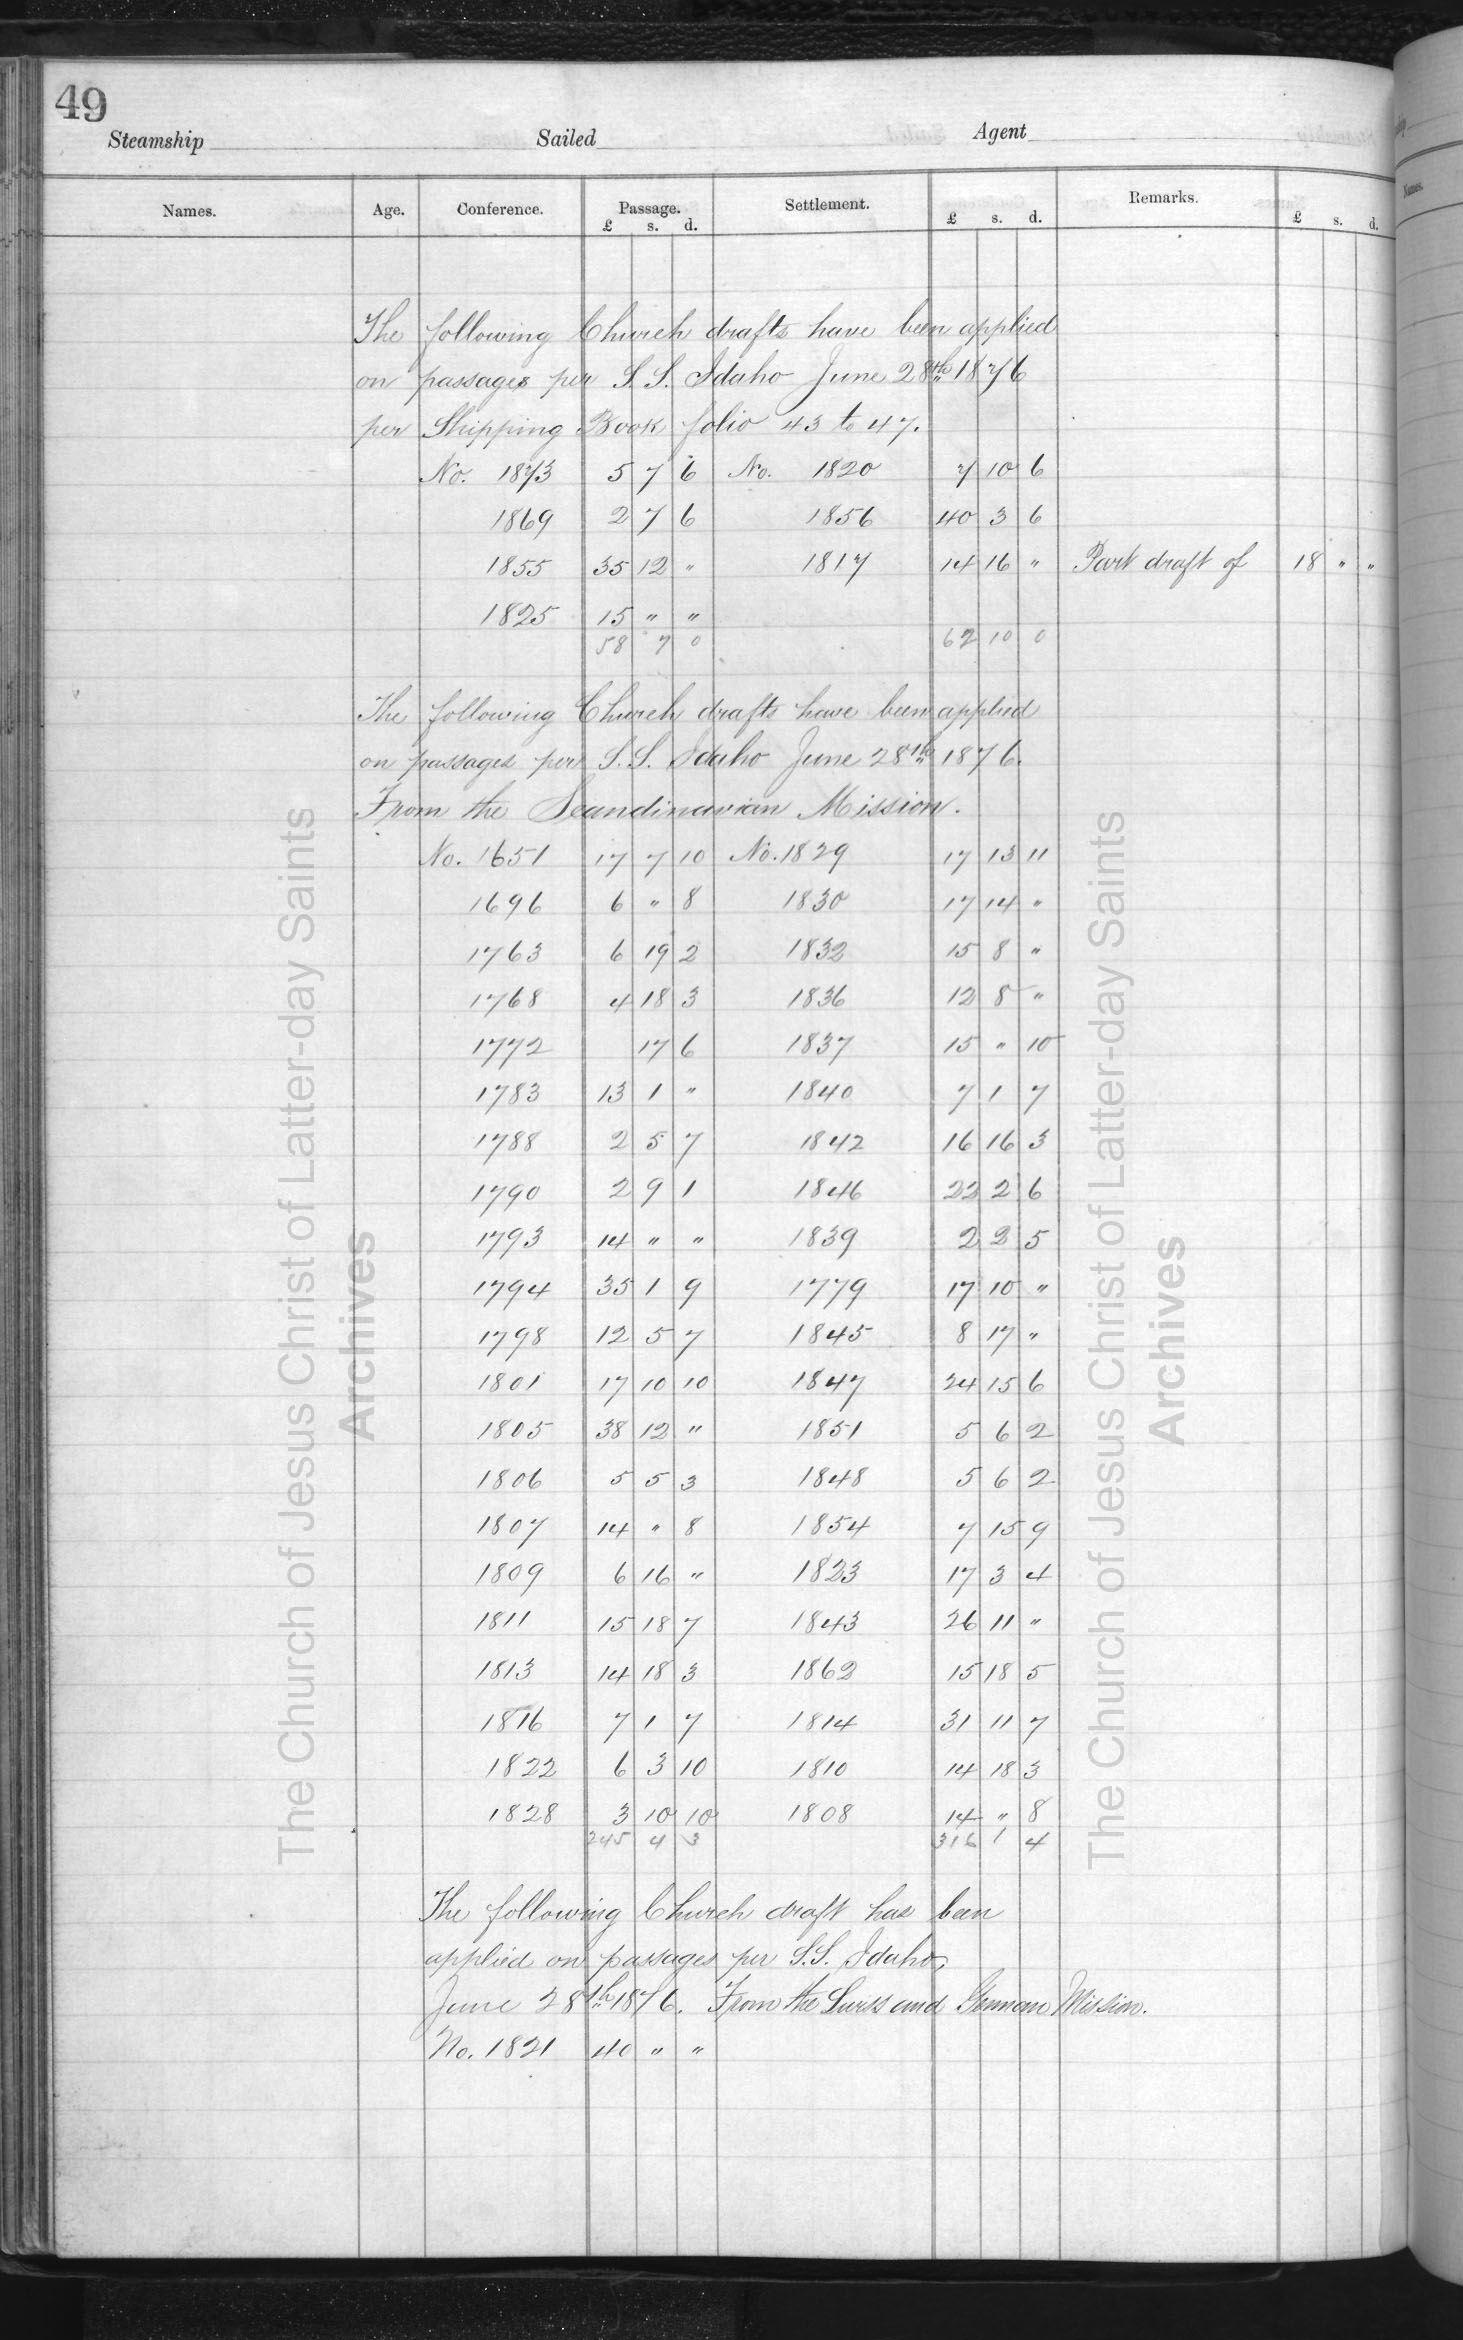 49
Steamship Sailed Agent
Names. Age. Conference. Passage. Settlement. Remarks.
£ s. d. £ s. d. £ s. d.
The following Church drafts have been applied
on passages per S.S. Idaho June 28th 1876
per Shipping Book folio 43 to 47.
No. 1873 5 7 6 No. 1820 7 10 6
1869 2 7 6 1856 40 3 6
1855 35 12 " 1817 14 16 " Part draft of 18 " "
1825 15 " "
58 7 0 62 10 0
The following Church drafts have been applied
on passages per S.S. Idaho June 28th 1876.
From the Scandinavian Mission.
No. 1651 17 7 10 No. 1829 17 13 11
1696 6 " 8 1830 17 14 "
1763 6 19 2 1832 15 8 "
1768 4 18 3 1836 12 8 "
1772 17 6 1837 15 " 10
1783 13 1 " 1840 7 1 7
1788 2 5 7 1842 16 16 3
1790 2 9 1 1846 22 2 6
1793 14 " " 1839 2 2 5
1794 35 1 9 1779 17 10 "
1798 12 5 7 1845 8 17 "
1801 17 10 10 1847 24 15 6
1805 38 12 " 1851 5 6 2
1806 5 5 3 1848 5 6 2
1807 14 " 8 1854 7 15 9
1809 6 16 " 1823 17 3 4
1811 15 18 7 1843 26 11 "
1813 14 18 3 1862 15 18 5
1816 7 1 7 1814 31 11 7
1822 6 3 10 1810 14 18 3
1828 3 10 10 1808 14 " 8
245 4 3 316 1 4
The following Church draft has been
applied on passages per S.S. Idaho,
June 28th 1876. From the Swiss and German Mission.
No. 1821 40 " "
The Church of Jesus Christ of Latter-day Saints
Archives
The Church of Jesus Christ of Latter-day Saints
Archives
Names.